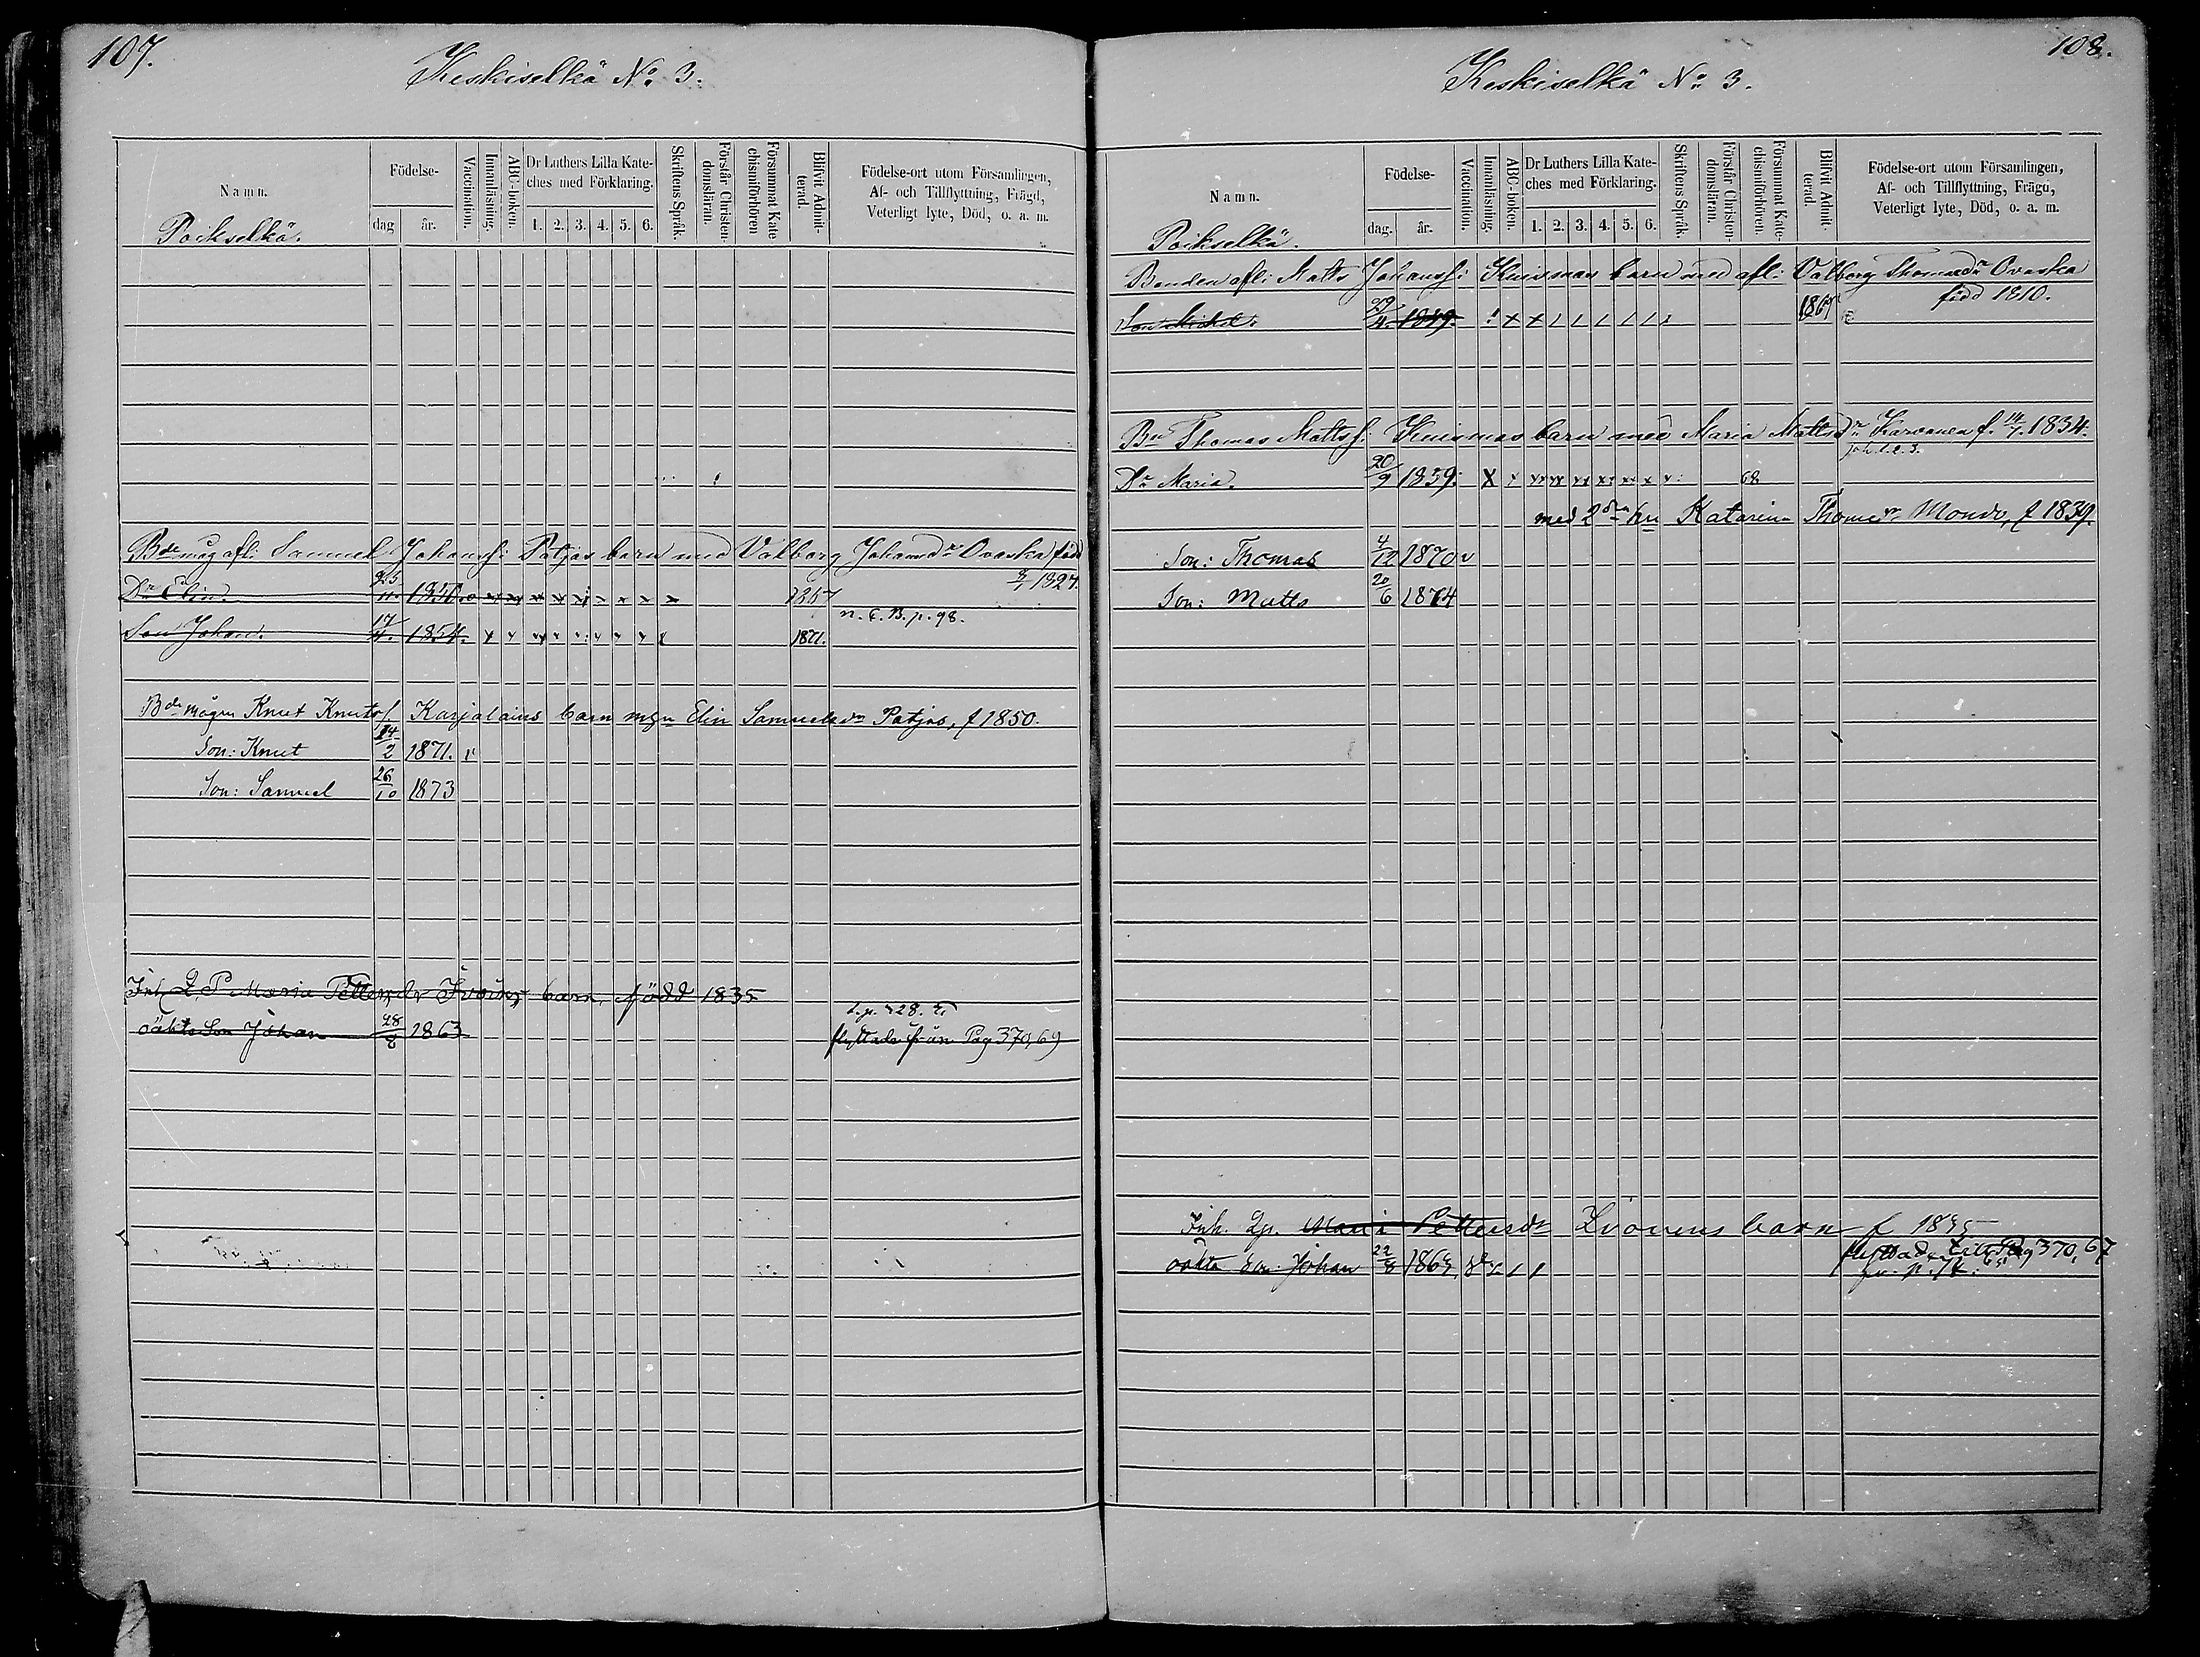 107.
Keskiselkä No 3.
Namn.
Födelse-
dag
år.
Vaccination.
Innanläsning.
ABC-boken.
Dr Luthers Lilla Kate-
ches med Förklaring.
1. 2. 3. 4. 5. 6.
Skriftens Språk.
Förstår Christen-
domsläran.
Försummat Kate
chismiförhören
Blifvit Admit-
terad.
Födelse-ort utom Församlingen,
Af- och Tillflyttning, Frägd,
Veterligt lyte, Död, o. a. m.
Poikselkä.
Bde måg afl: Samuel Johanss: Patjas barn med Valborg Johansdr Ovaska född
3/1 1827.
Dr Elin. 1850. 1867
n. C. B. p. 98.
Son Johan. 17/4. 1854. 1871.
Bde mågen Knut Knutss. Karjalains barn m Elin Samuelsdr Patjas, f 1850.
Son: Knut 14/2 1871. v
Son: Samuel 26/10 1873
Inh. Q. P. Maria Pettersdr Ivoins barn, född 1835
oäkta Son Johan 28/8 1863
flyttade från Pag 370, 69
108.
Keskiselkä No 3.
Namn.
Födelse-
dag.
år.
Vaccination.
Innanläsning.
ABC-boken.
Dr Luthers Lilla Kate-
ches med Förklaring.
1. 2. 3. 4. 5. 6.
Skriftens Språk.
Förstår Christen-
domsläran.
Försummat Kate-
chismiförhören.
Blifvit Admit-
terad.
Födelse-ort utom Församlingen,
Af- och Tillflyttning, Frägd,
Veterligt lyte, Död, o. a. m.
Poikselkä.
Bonden afl: Matts Johanss: Kuismas barn med afl: Valborg Thomasdr Ovaska
född 1810.
Son Michel. 29/4. 1849. 1867
Bn Thomas Mattss. Kuismas barn med Maria Mattsdr Karvanen f. 14/7. 1834.
Dr Maria. 20/9 1859. 68
med 2dra hu Katarina Thomasdr Mondo, f 1839.
Son: Thomas 4/12 1870 v
Son: Matts 20/6 1874
Inh. Qp. Maria Pettersdr Ivonens barn f 1835
oäkta Son Johan 22/8 1863
flyttade till Pag 370, 67